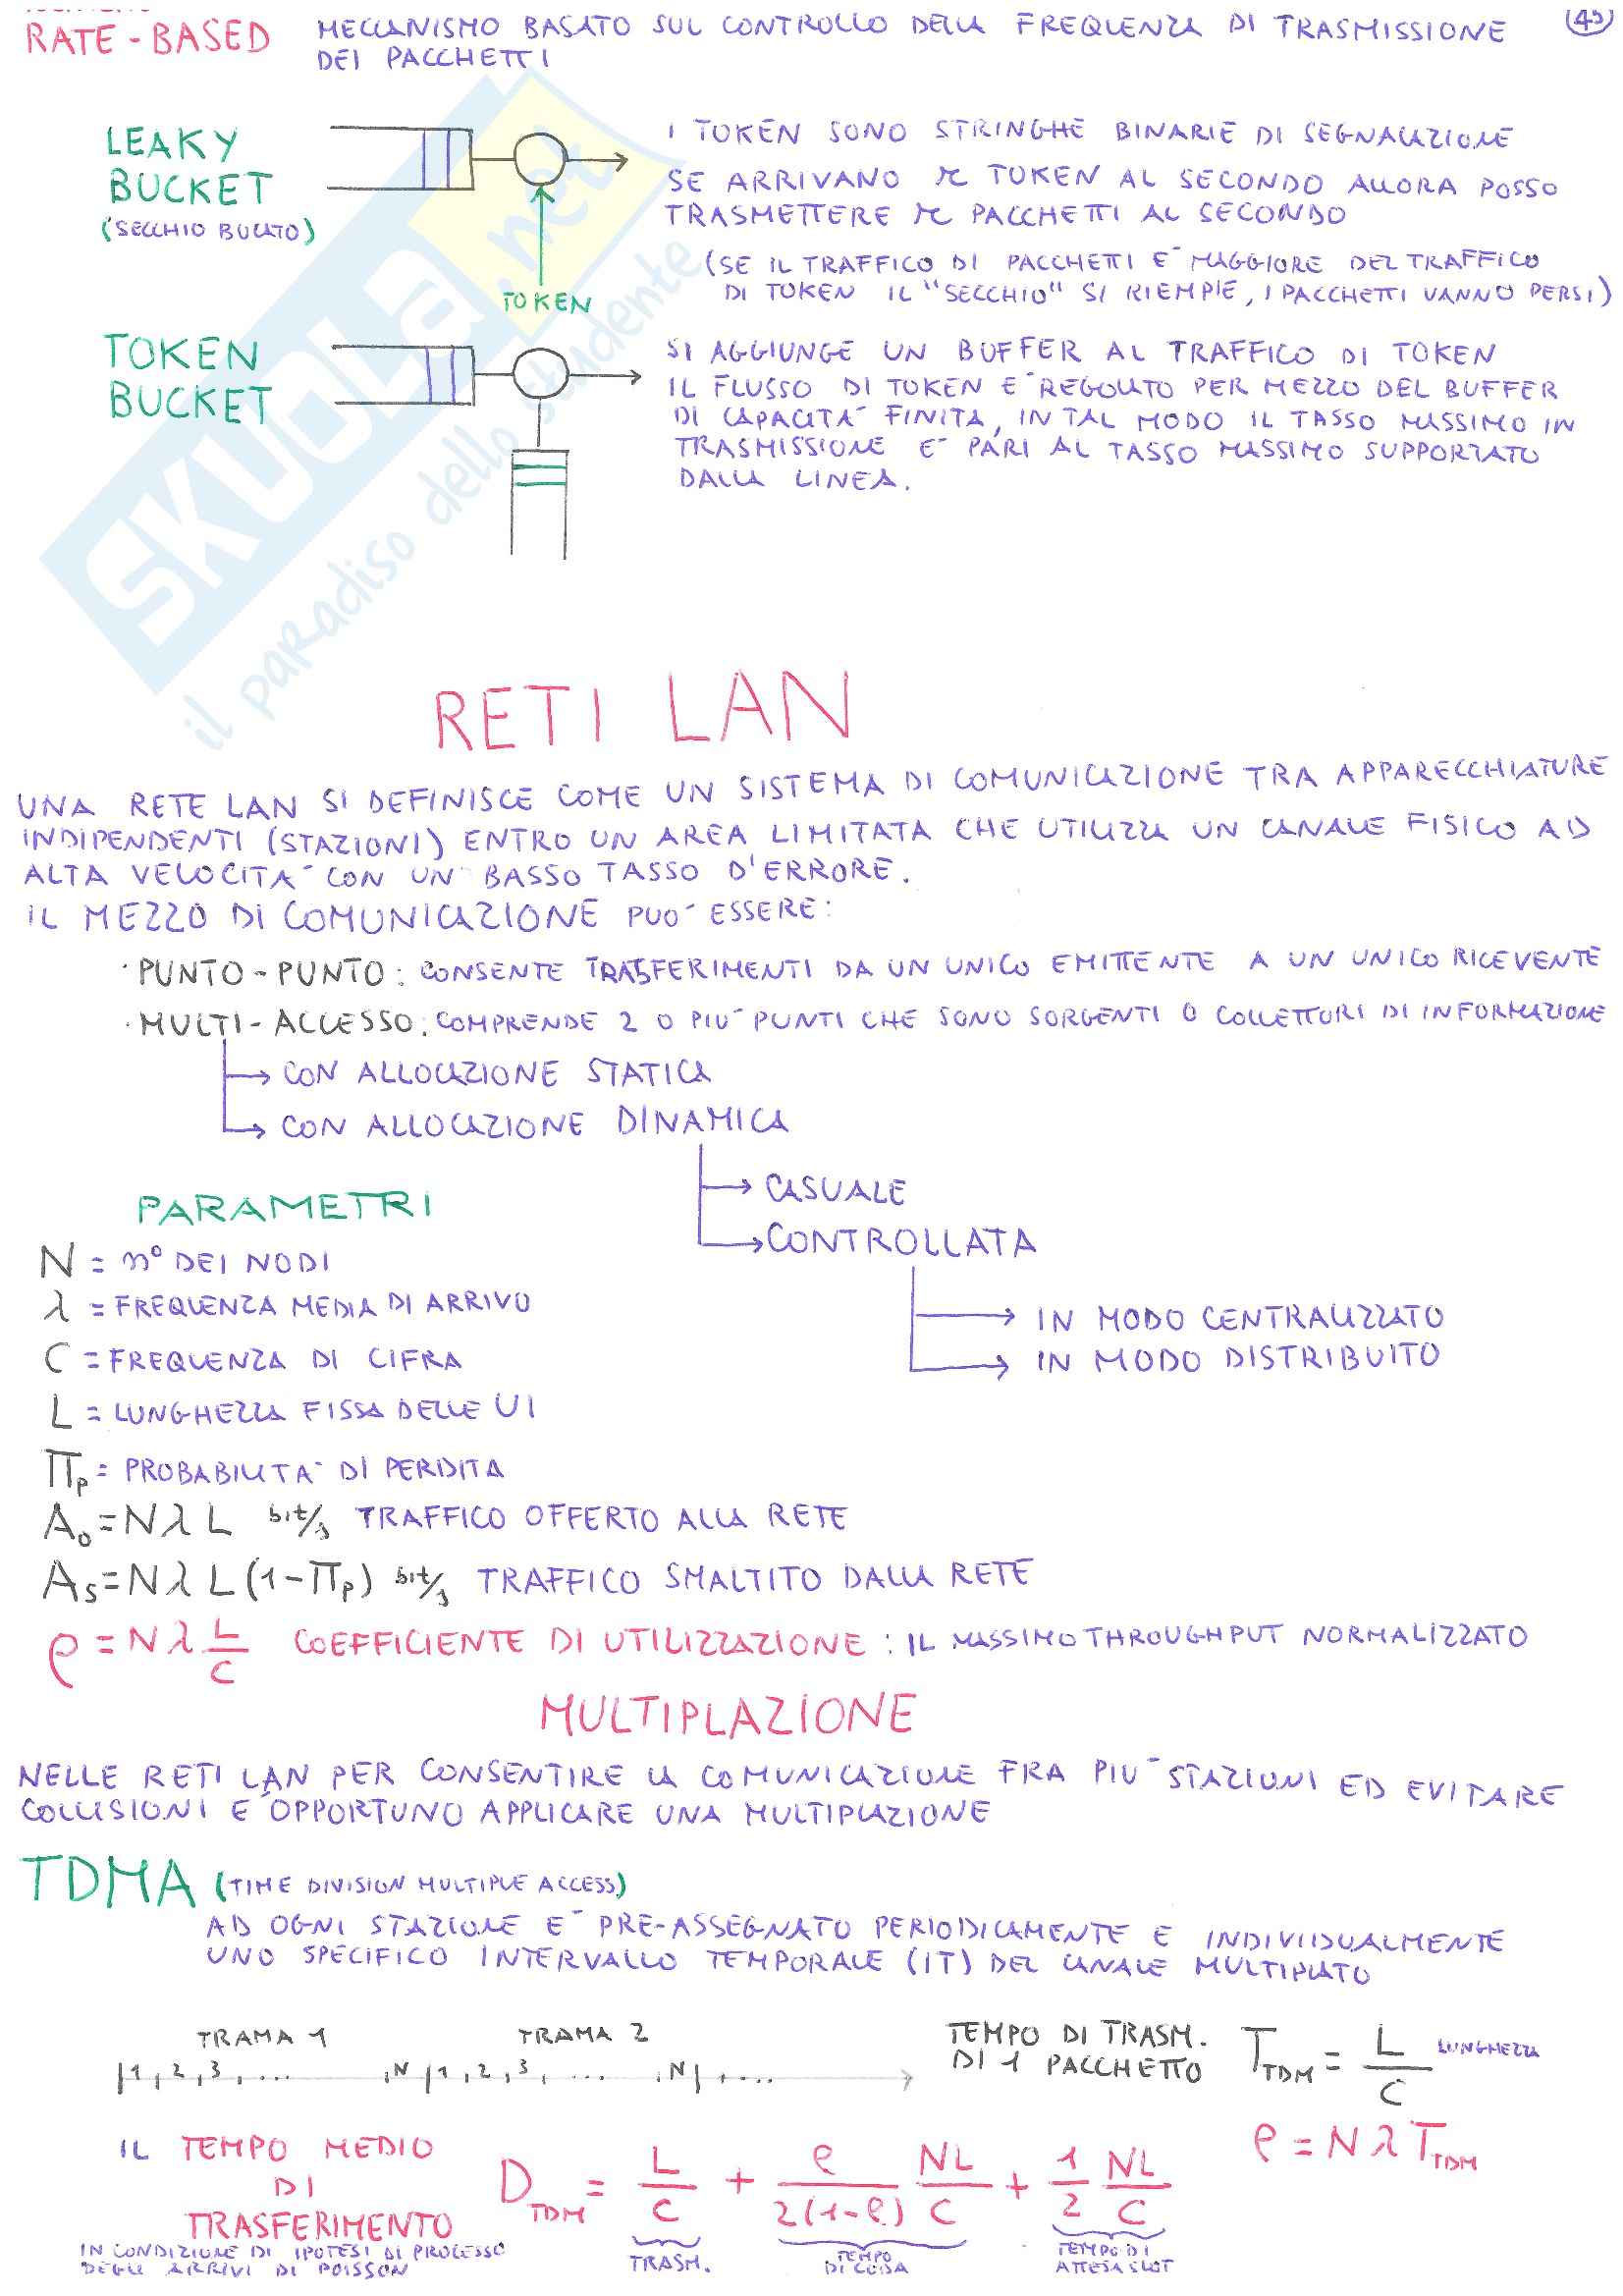 RATE-BASED MECCANISMO BASATO SUL CONTROLLO DELLA FREQUENZA DI TRASMISSIONE
DEI PACCHETTI
LEAKY
BUCKET
(SECCHIO BUCATO)
TOKEN
I TOKEN SONO STRINGHE BINARIE DI SEGNALAZIONE
SE ARRIVANO r TOKEN AL SECONDO ALLORA POSSO
TRASMETTERE r PACCHETTI AL SECONDO
(SE IL TRAFFICO DI PACCHETTI E' MAGGIORE DEL TRAFFICO
DI TOKEN IL "SECCHIO" SI RIEMPIE, I PACCHETTI VANNO PERSI)
TOKEN
BUCKET
SI AGGIUNGE UN BUFFER AL TRAFFICO DI TOKEN
IL FLUSSO DI TOKEN E' REGOLATO PER MEZZO DEL BUFFER
DI CAPACITA' FINITA, IN TAL MODO IL TASSO MASSIMO IN
TRASMISSIONE E' PARI AL TASSO MASSIMO SUPPORTATO
DALLA LINEA.
SKUOLA.net
il paradiso dello studente
RETI LAN
UNA RETE LAN SI DEFINISCE COME UN SISTEMA DI COMUNICAZIONE TRA APPARECCHIATURE
INDIPENDENTI (STAZIONI) ENTRO UN AREA LIMITATA CHE UTILIZZA UN CANALE FISICO AD
ALTA VELOCITA' CON UN BASSO TASSO D'ERRORE.
IL MEZZO DI COMUNICAZIONE PUO' ESSERE:
· PUNTO-PUNTO: CONSENTE TRASFERIMENTI DA UN UNICO EMITTENTE A UN UNICO RICEVENTE
· MULTI-ACCESSO: COMPRENDE 2 O PIU' PUNTI CHE SONO SORGENTI O COLLETTORI DI INFORMAZIONE
→ CON ALLOCAZIONE STATICA
→ CON ALLOCAZIONE DINAMICA
→ CASUALE
→ CONTROLLATA
→ IN MODO CENTRALIZZATO
→ IN MODO DISTRIBUITO
PARAMETRI
N = n° DEI NODI
λ = FREQUENZA MEDIA DI ARRIVO
C = FREQUENZA DI CIFRA
L = LUNGHEZZA FISSA DELLE UI
Πp = PROBABILITA' DI PERDITA
Ao = NλL bit/s TRAFFICO OFFERTO ALLA RETE
As = NλL(1-Πp) bit/s TRAFFICO SMALTITO DALLA RETE
ρ = Nλ L/C COEFFICIENTE DI UTILIZZAZIONE: IL MASSIMO THROUGHPUT NORMALIZZATO
MULTIPLAZIONE
NELLE RETI LAN PER CONSENTIRE LA COMUNICAZIONE FRA PIU' STAZIONI ED EVITARE
COLLISIONI E' OPPORTUNO APPLICARE UNA MULTIPLAZIONE
TDMA (TIME DIVISION MULTIPLE ACCESS)
AD OGNI STAZIONE E' PRE-ASSEGNATO PERIODICAMENTE E INDIVIIDUALMENTE
UNO SPECIFICO INTERVALLO TEMPORALE (IT) DEL CANALE MULTIPLATO
TRAMA 1 TRAMA 2
|1,2,3,... ,N|1,2,3,... ,N|,...
TEMPO DI TRASM.
DI 1 PACCHETTO
T_TDM = L/C LUNGHEZZA
ρ = NλT_TDM
IL TEMPO MEDIO
DI
TRASFERIMENTO
IN CONDIZIONE DI IPOTESI DI PROCESSO
DEGLI ARRIVI DI POISSON
D_TDM = L/C + ρ/2(1-ρ) NL/C + 1/2 NL/C
TRASM.
TEMPO
DI CODA
TEMPO DI
ATTESA SLOT